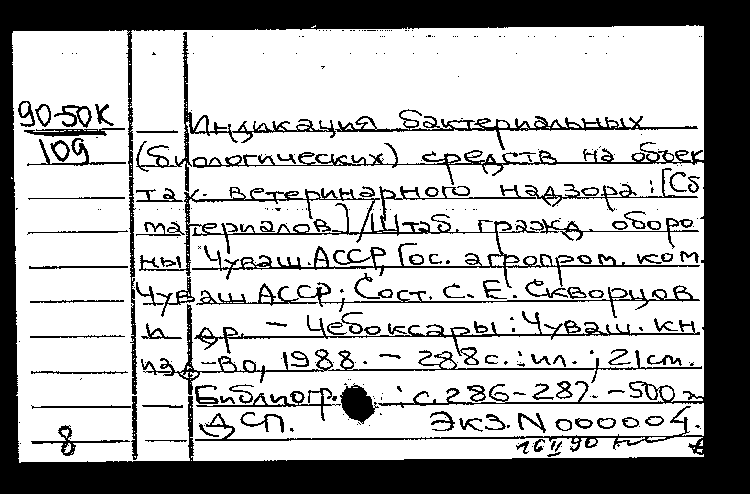 90-50К
109
Индикация бактериальных
(биологических) средств на объек
тах ветеринарного надзора: [Сб.
материалов] / Штаб. гражд. оборо
ны Чуваш. АССР, Гос. агропром. ком.
Чуваш АССР; Сост. С. Е. Скворцов
и др. - Чебоксары: Чуваш. кн.
изд-во, 1988. - 288с.: ил.; 21см.
Библиогр.: с. 286-287. - 500
ДСП. Экз. N 000004.
8
16 II 90